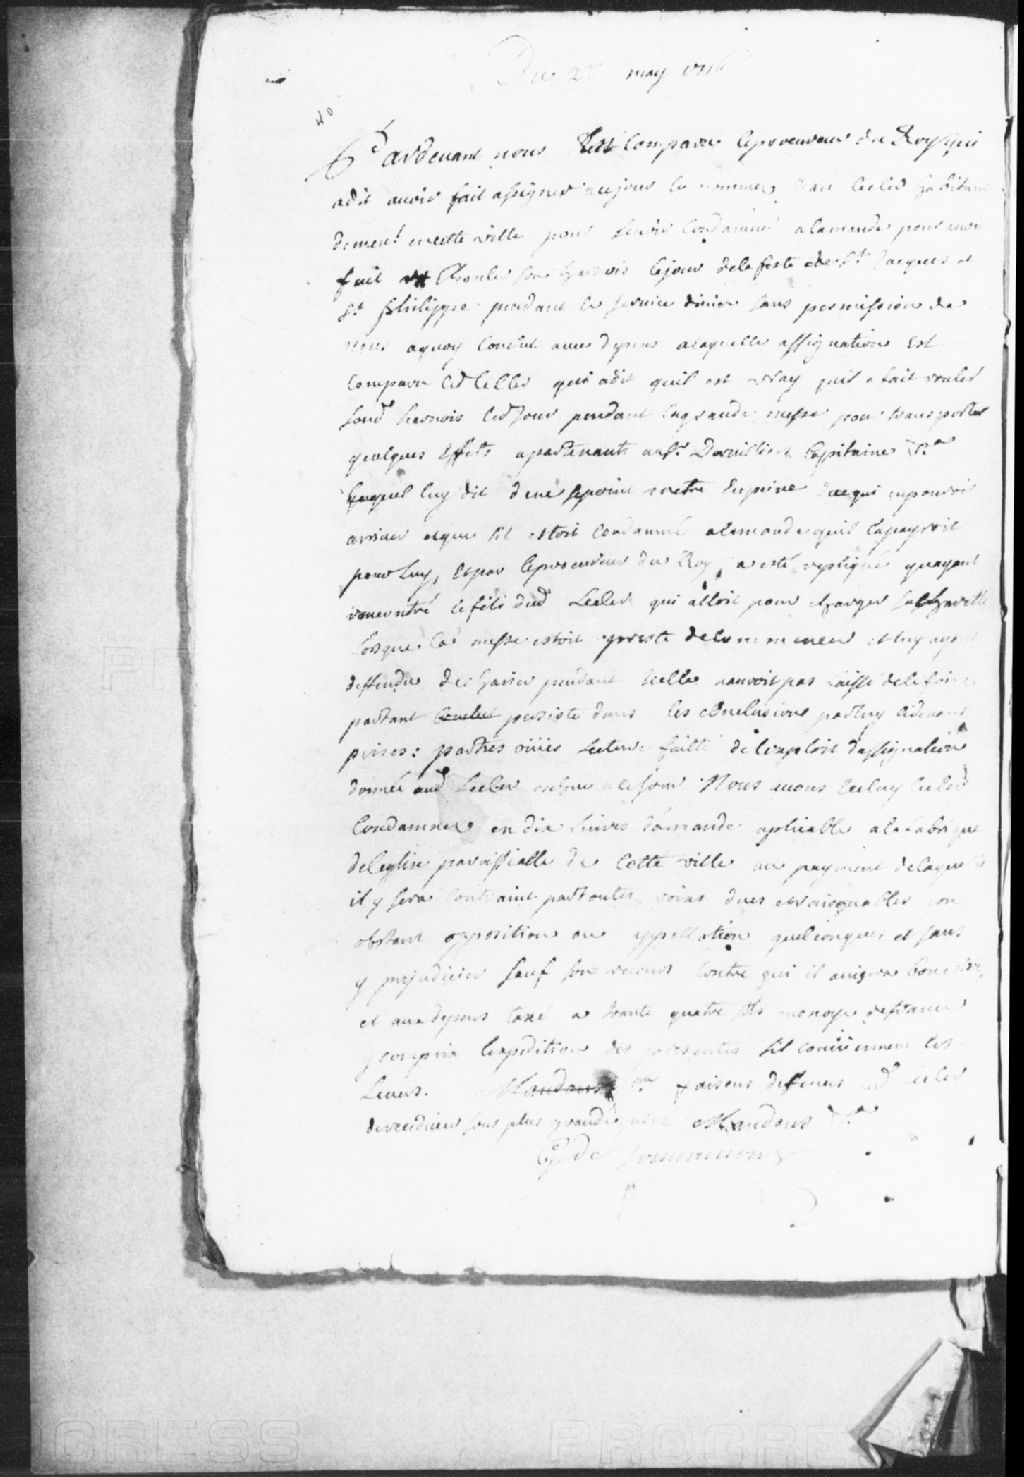 Du 2e may 1716
40
Pardevant nous Est Comparu Leprocureur du Roy qui
adit avoir fait assigner aujour le nommé Jean Lecler habitant
demeut encette ville pour se voir Condamner alamande pour avoir
fait charier son harnois lejour delafeste de St Jacques et
St Philippe pendant le service divin sans permission de
nous aquoy Conclut avec depens alaquelle assignation Est
Comparu led Lecler qui adit quil est vray quil a fait rouler
sond harnois led Jour pendant lagrande messe pour transporter
quelques Effets apartenants au Sr Capitaine
lequel luy dit dene sepoint mettre enpeine dece qui enpouroit
ariver et que sil estoit Condamné alamande quil lapayroit
pour luy, Et par leprocureur du Roy, a esté repliqué quayant
rencontré lefils dud Lecler qui alloit pour charger sacharette
lorsque la messe estoit preste de commencer et luy ayant
deffendu de charier pendant icelle nauroit pas laissé delefaire
partant persiste dans les Conclusions parluy cidevant
prises: parties ouies lecture faitte de lexploit dassignation
donné aud Lecler Nous avons iceluy Lecler
Condamné en dix livres damande aplicable alafabrique
deleglise paroissialle de Cette ville au payment delaquelle
il y sera Contraint partoutes voies dues et raisonables non
obstant opposition ou appellation quelconques et sans
y prejudicier sauf son recours Contre qui il avisera bon estre,
et aux depens taxé a trante quatre sols monoye
y compris lexpedition des presentes sil Conviennent les
Lever. Mandons faisons defences aud Lecler
derecidiver sous plus grande peine Mandons &a